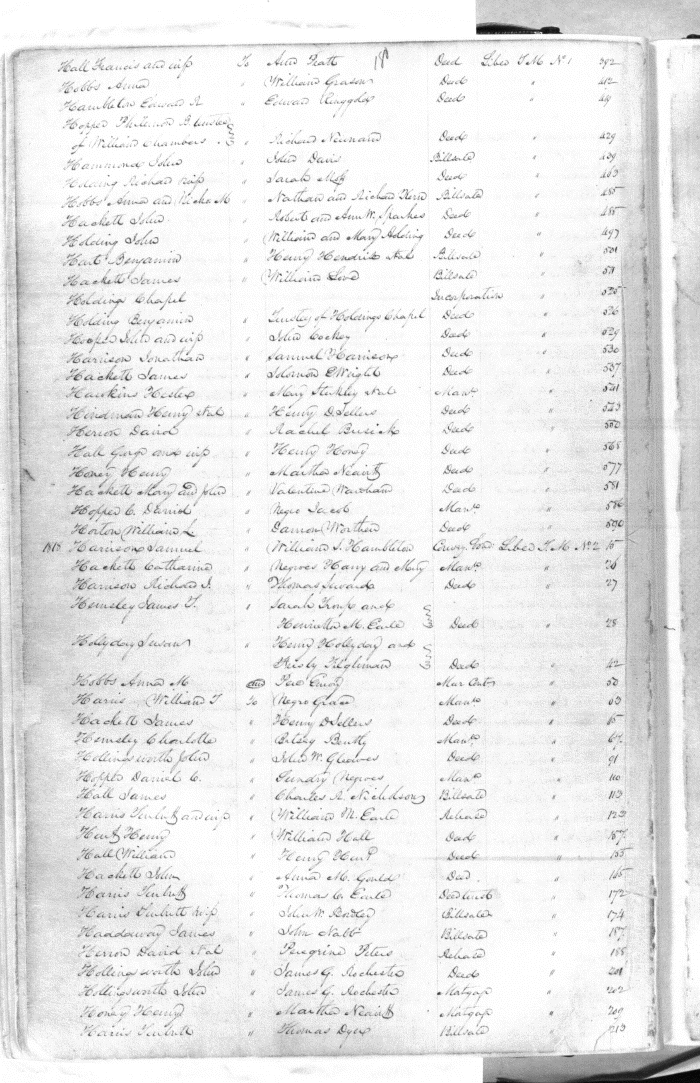 18
Hall Francis and wife To Ann Heath Deed Liber T M No 1 392
Hobbs Anna " William Grason Deed " 412
Hambleton Edward N " Edward Deed " 419
Hopper Philemon B trustee
of William Chambers " Richard Newnam Deed " 429
Hammond John " John Davis Billsale " 439
Holding Richard & wife " Sarah Deed " 463
Hobbs Anna and M " Nathan and Richard Billsale " 485
Hackett John " Robert and Ann W. Sparkes Deed " 488
Holding John " William and Mary Holding Deed " 497
Hart Benjamin " Henry Hendrick et al Billsale " 501
Hackett James " William Love Billsale " 511
Holdings Chapel Incorporation " 525
Holding Benjamin " Trustees of Holdings Chapel Deed " 526
Hooper John and wife " John Cockey Deed " 529
Harrison Jonathan " Samuel Harrison Deed " 530
Hackett James " Solomon C Wright Deed " 537
Hawkins Hester " Mary et al Manu 541
Hindman Henry et al " Henry D Sellers Deed " 543
Herron David " Rachel Busick Deed " 550
Hall George and wife " Henry Honey Deed " 568
Honey Henry " Martha Deed " 577
Hackett Mary and John " Valentine Deed " 581
Hopper C. Daniel " Negro Jacob Manu " 586
Horton William L " Deed " 590
1818 Harrison Samuel " William S. Hambleton Liber T M No 2 15
Hackett Catharine " Negroes Harry and Manu " 26
Harrison Richard J. " Thomas Seward Deed " 27
Hemsley James T. " Sarah and
Henrietta M. Earle Deed " 28
Hollyday Susan " Henry Hollyday and
Deed " 42
Hobbs Anna M Mar Cont " 50
Harris William T To Negro Grace Manu " 53
Hackett James " Henry D Sellers Deed " 65
Hemsley Charlotte " Betsey Bently Manu " 67
Hollingsworth John " John W. Gleaves Deed " 91
Hopper Daniel C. " Sundry Negroes Manu " 110
Hall James " Charles R. Nicholson Billsale " 113
Harris and wife " William M. Earle Release " 123
Henry " William Hall Deed "
Hall William " Henry Deed " 155
Hackett John " Anna M. Gould Deed " 165
Harris " Thomas C. Earle Deed trust " 172
Harris & wife " John W. Billsale " 174
Haddaway James " John Nabb Billsale " 187
Herron David et al " Peregrine Peters Release " 188
Hollingsworth John " James G. Rochester Deed " 201
Hollingsworth John " James G. Rochester Mortgage " 202
Honey Henry " Martha Mortgage " 209
Harris " Thomas Dyer Billsale " 213